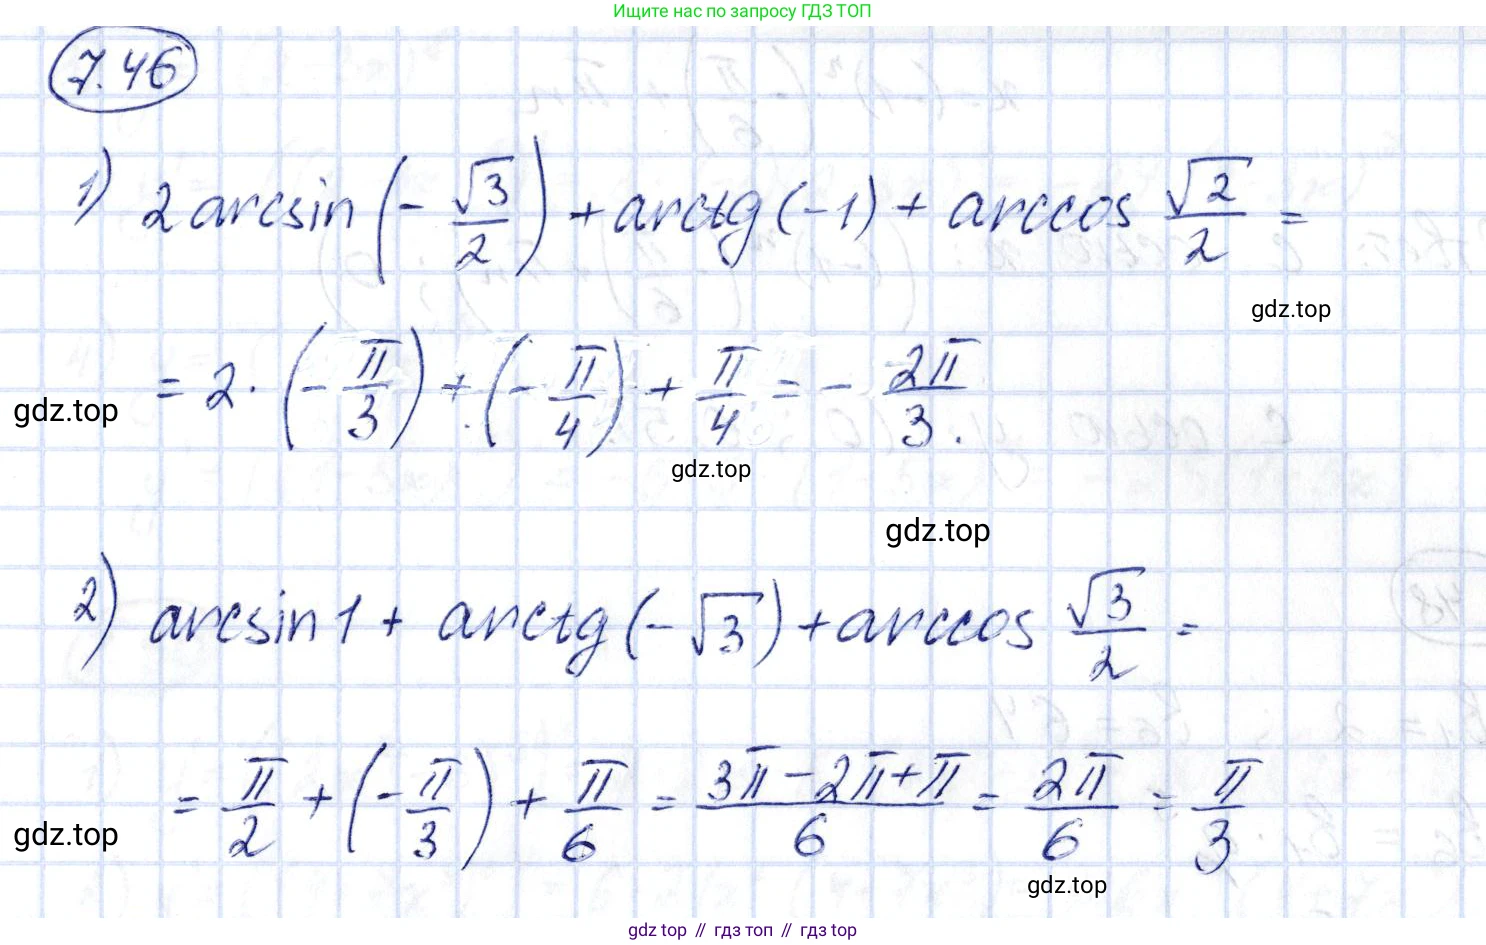 Ищите нас по запросу ГДЗ ТОП
7.46
1) 2 arcsin (- √3/2) + arctg (-1) + arccos √2/2 =
gdz.top
= 2 · (- π/3) + (- π/4) + π/4 = - 2π/3.
gdz.top
gdz.top
gdz.top
2) arcsin 1 + arctg (-√3) + arccos √3/2 =
= π/2 + (- π/3) + π/6 = (3π - 2π + π)/6 = 2π/6 = π/3
gdz.top
gdz.top
gdz.top // гдз топ // гдз top